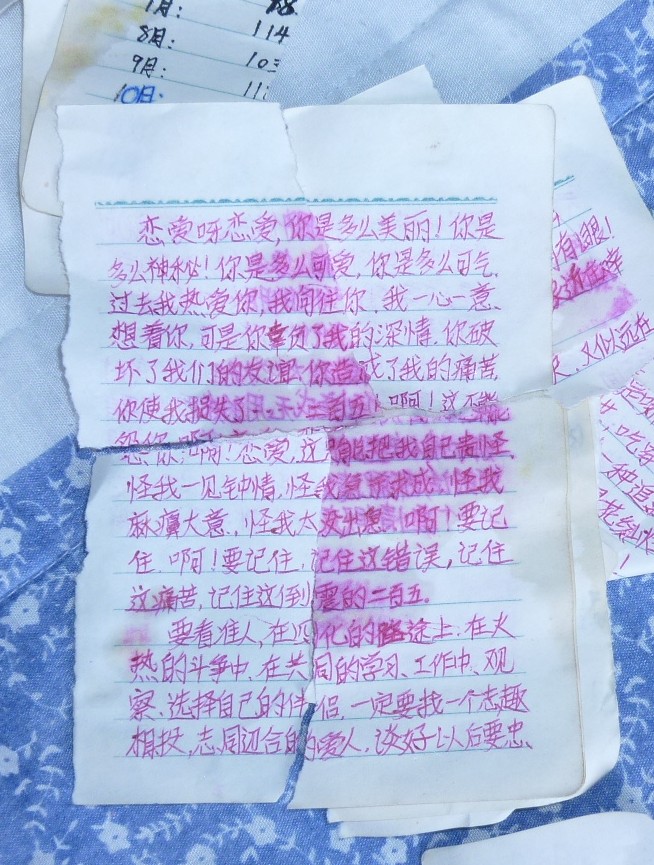 7月:
8月: 114
9月: 10
10月: 11
恋爱呀恋爱,你是多么美丽!你是
多么神秘!你是多么可爱,你是多么可气,
过去我热爱你,我向往你.我一心一意.
想看你,可是你辜负了我的深情.你破
坏了我们的友谊.你造成了我的痛苦
你使我损失了 二百五 啊!这不能
怨你.啊!恋爱,这 能把我自己责怪.
怪我一见钟情,怪我急于求成,怪我
麻痹大意.怪我太没出息 啊!要记
住.啊!要记住,记住这错误,记住
这痛苦,记住这倒霉的二百五.
要看准人,在四化的路途上:在火
热的斗争中.在共同的学习、工作中.观
察、选择自己的伴侣.一定要找一个志趣
相投,志同道合的爱人.谈好以后要忠、
有眼!